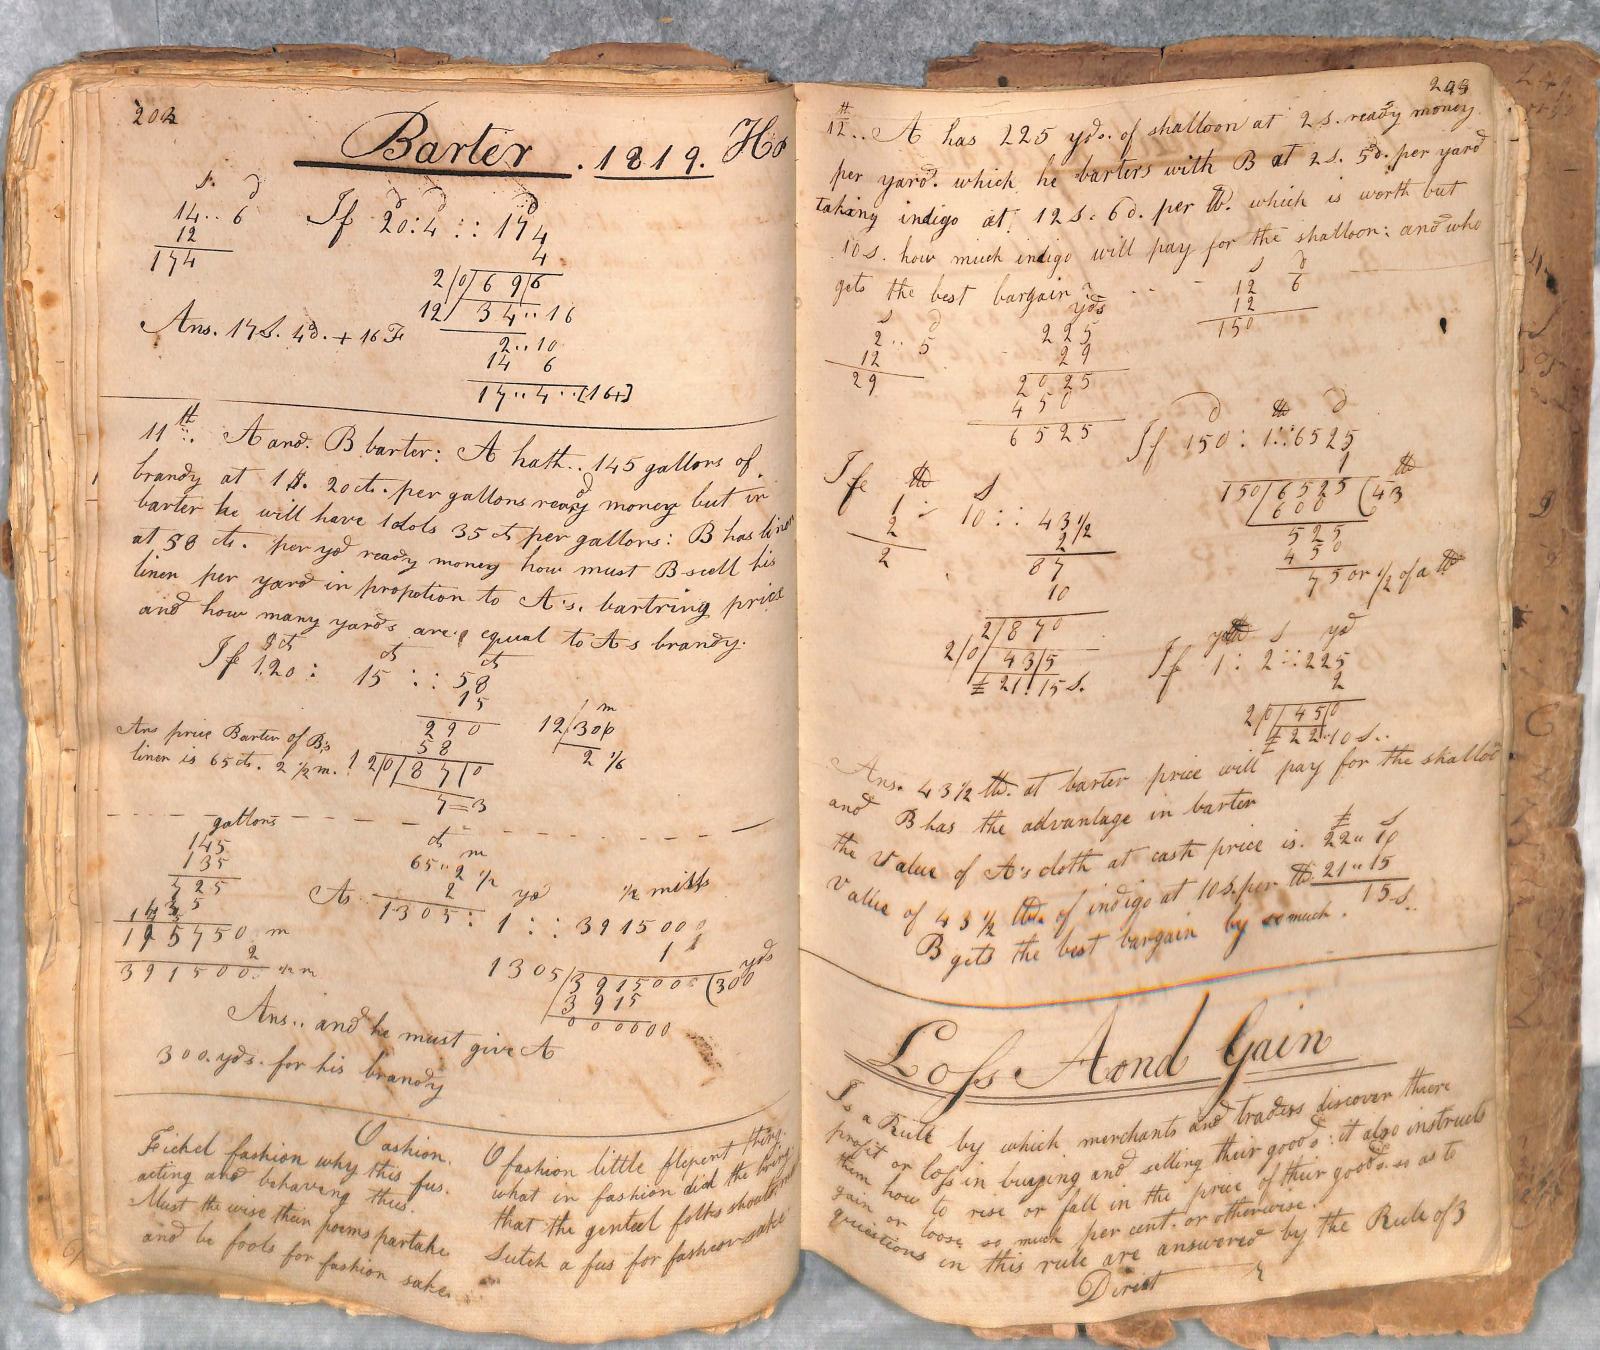 202
Barter . 1819. Ho
s. d
14.. 6
12
174
If 20 : 4 :: 174
4
2/0/69/6
12/34..16
2..10
14 6
17..4..(16+)
Ans. 17s. 4d. + 16 F
11th. A and B barter: A hath.. 145 gallons of
brandy at 1$. 20 cts. per gallons ready money but in
barter he will have 1 dols 35 ct per gallons: B has linen
at 58 cts. per yd ready money how must B scell his
linen per yard in propotion to A's. bartring price
and how many yards are equal to A s brandy.
$ ct ct ct
If 1.20 : 15 :: 58
15
290
58
12/0/87/0
7=3
m
12/300
2 1/6
Ans price Barter of B,s
linen is 65 cts. 2 1/2 m.
gallons
145
135
725
435
145
195750 m
2
391500. 1/2 m
ct m
65.. 2 1/2
2
As 1305 : 1 :: 3915000
yd 1/2 mills
1
1305/3915000(300 yds
3915
000000
Ans.. and he must give A
300. yds. for his brandy
Fashion.
Fickel fashion why this fus.
acting and behaving thus.
Must the wise their poems partake
and be fools for fashion sake.
O fashion little flepent thing.
what in fashion did the bring
that the genteel folks should
Sutch a fus for fashion sake
203
12th.. A has 225 yds. of shalloon at 2 s. ready money
per yard. which he barters with B at 2s. 5d. per yard
taking indigo at 12s. 6d. per lb. which is worth but
10 s. how much indigo will pay for the shalloon: and who
gets the best bargain
s d
2.. 5
12
29
yds
225
29
2025
450
6525
s d
12 6
12
150
d lb d
If 150 : 1 :: 6525
1
150/6525(43 lb
600
525
450
75 or 1/2 of a lb
If lb s
1 : 10 :: 43 1/2
2 2
2 87
10
2/870
2/0/43/5
£ 21. 15 s.
yd s yd
If 1 : 2 :: 225
2
2/0/45/0
£ 22.10 s..
Ans. 43 1/2 lb. at barter price will pay for the shalloo
and B has the advantage in barter
£ s
the Value of A's cloth at cash price is. 22.. 10
Value of 43 1/2 lb. of indigo at 10 s. per lb. 21.. 15
15 s.
B gets the best bargain by so much.
Loss Aand Gain
Is a Rule by which merchants and traders discover there
profit or loss in buying and selling their goods: it also instructs
them how to rise or fall in the price of their goods. so as to
gain or loose so much per cent. or otherwise.
questions in this rule are answered by the Rule of 3
Direct